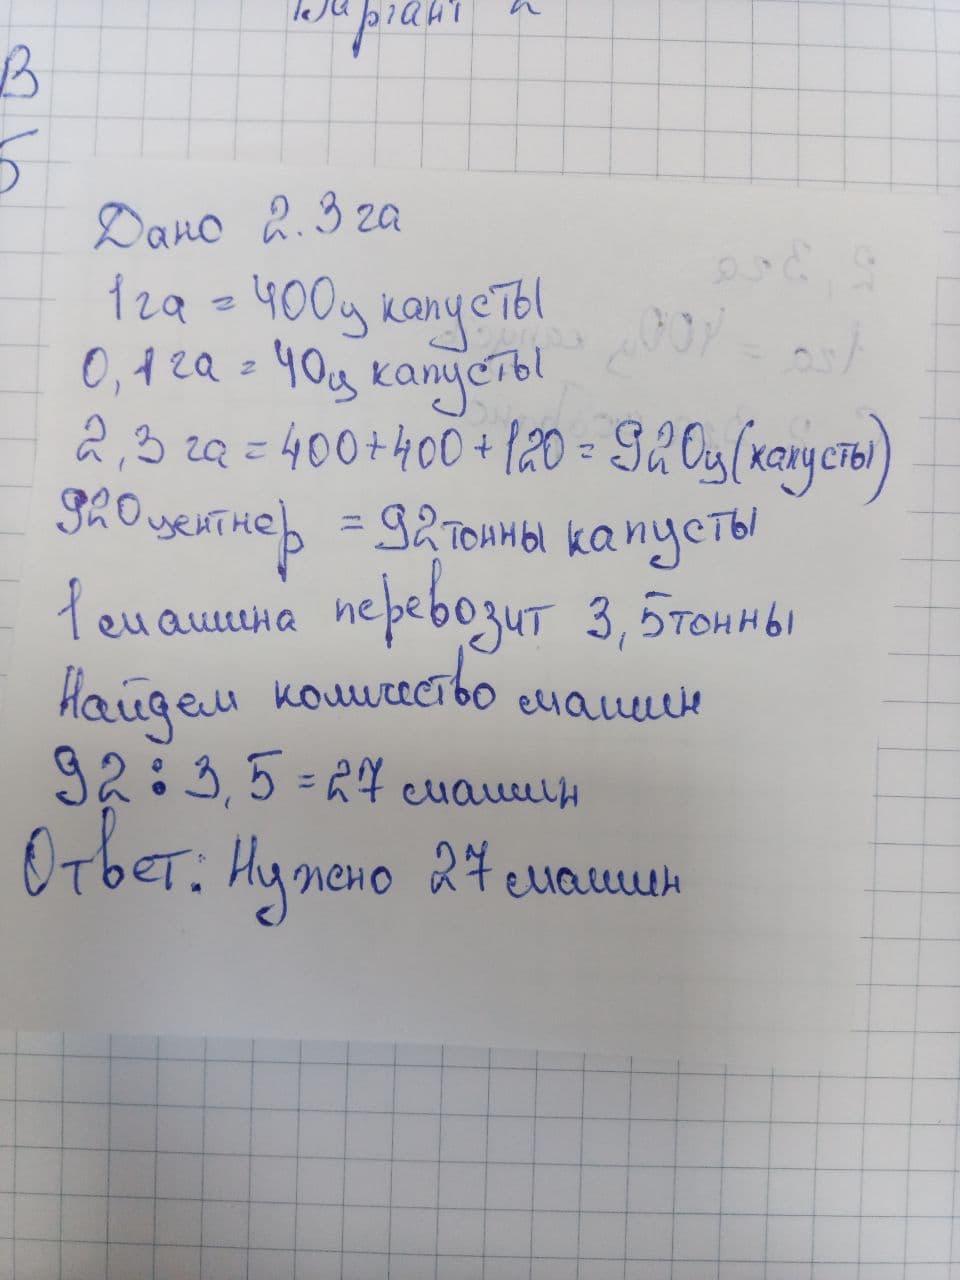 Вариант 2
В
Б
Дано 2.3 га
1 га = 400ц капусты
0,1 га = 40ц капусты
2,3 га = 400+400+120 = 920ц (капусты)
920 центнер = 92 тонны капусты
1 машина перевозит 3,5 тонны
Найдем количество машин
92 : 3,5 = 27 машин
Ответ: Нужно 27 машин